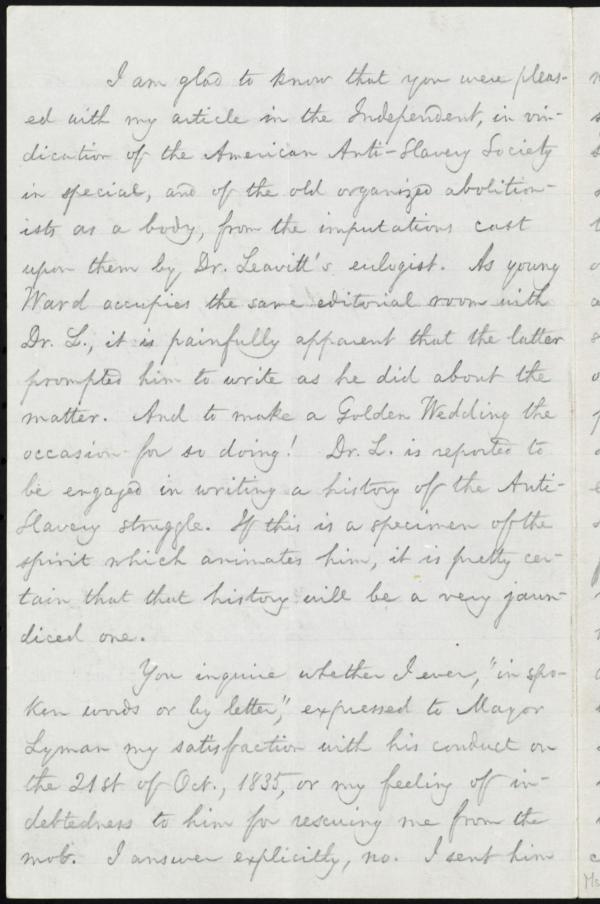 I am glad to know that you were pleas-
ed with my article in the Independent, in vin-
dication of the American Anti-Slavery Society
in special, and of the old organized abolition-
ists as a body, from the imputations cast
upon them by Dr. Leavitt's eulogist. As young
Ward occupies the same editorial room with
Dr. L., it is painfully apparent that the latter
prompted him to write as he did about the
matter. And to make a Golden Wedding the
occasion for so doing! Dr. L. is reported to
be engaged in writing a history of the Anti-
Slavery struggle. If this is a specimen of the
spirit which animates him, it is pretty cer-
tain that that history will be a very jaun-
diced one.
You inquire whether I ever, "in spo-
ken words or by letter," expressed to Mayor
Lyman my satisfaction with his conduct on
the 21st of Oct., 1835, or my feeling of in-
debtedness to him for rescuing me from the
mob. I answer explicitly, no. I sent him